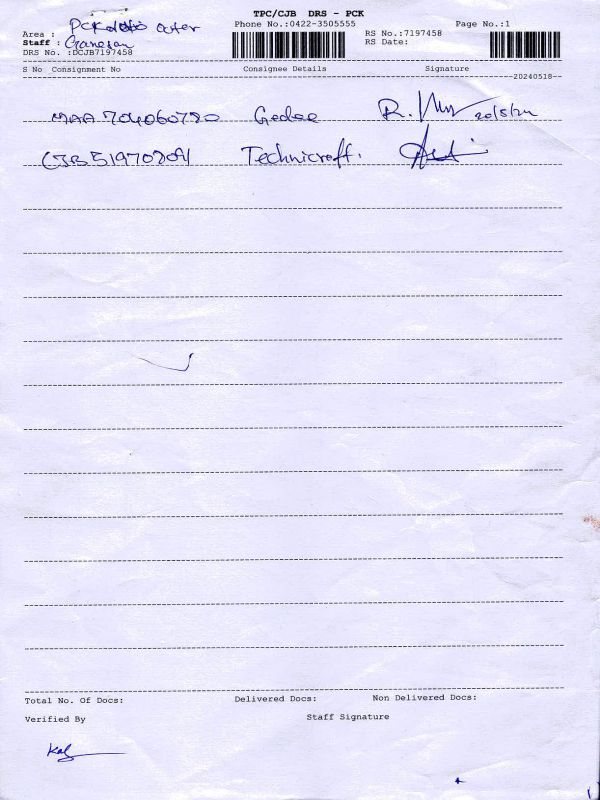 TPC/CJB DRS - PCK
Phone No.:0422-3505555
Page No.:1
Area : PCK outer
RS No.:7197458
Staff : Ganesan
RS Date:
DRS No. :DCJB7197458
S No Consignment No Consignee Details Signature
20240518
MAA704060780 Gedee R. 20/5/24
CJB51970804 Technicraft.
Total No. Of Docs: Delivered Docs: Non Delivered Docs:
Verified By Staff Signature